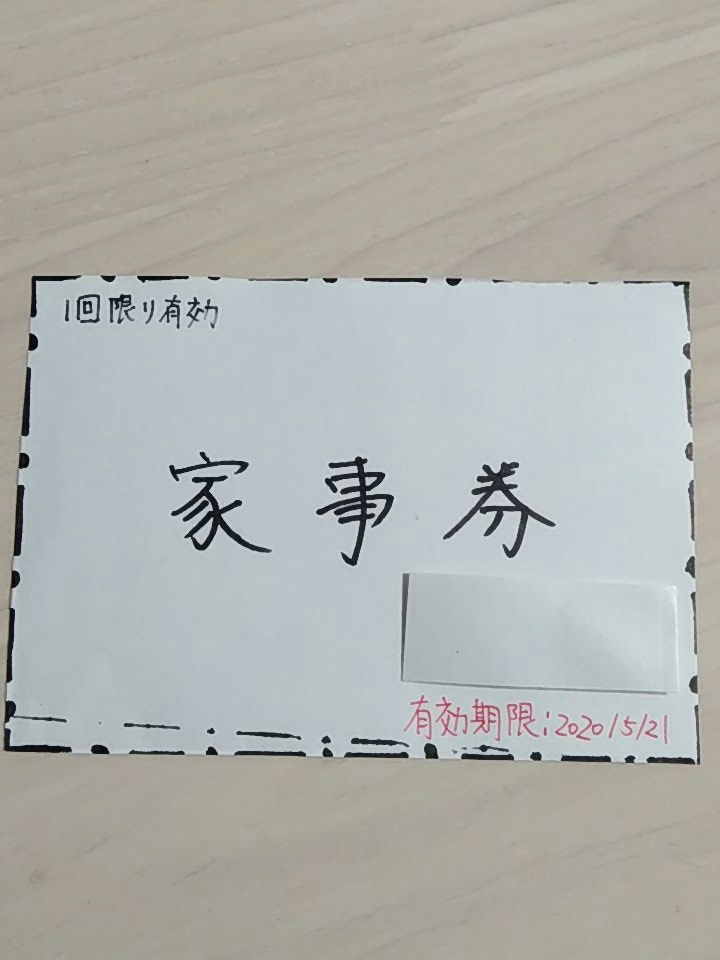 1回限り有効
家事券
有効期限:2020/5/21